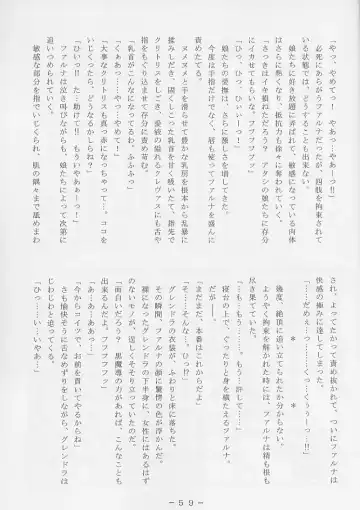 「やっ、やめてっ！　やぁっ…やあーっ!!」
必死にあらがうファルナだったが、四肢を拘束されて
いる状態では、どうすることも出来ない。
娘たちに好き放題に弄ばれて、敏感になっている肉体
はさらに熱くなり、抵抗力も徐々に奪われていく。
「さっきはイキ損ねただろう？　アタシの娘たちに存分
にイカせてもらいな！　ププププッ」
「ひっ、ひっ、ひぃーっ！」
娘たちの愛撫は、さらに激しさを増してきた。
今度は手指だけでなく、唇も使ってファルナを盛んに
責めたてる。
ヌメヌメと手を滑らせて豊かな乳房を根本から乱暴に
揉みしだき、固くしこった乳首を甘く吸いたて、指先で
クリトリスをしごき、愛液の溢れるクレヴァスにも舌や
指をもぐり込ませて存分に責め苛む。
「乳首がこんなになってるわ、ふふふっ」
「くぁあっ…やっ…やめて！」
「大事なクリトリスも真っ赤になっちゃって…。ココを
いじくったら、どうなるかしらね？」
「ひいっ!!　た…助けて!!　もういやあぁーっ！」
ファルナは泣き叫びながらも、娘たちによって次第に
敏感な部分を指でいじくられ、肌の隅々まで舐めまわ
され、よってたかって責め抜かれて、ついにファルナは
快感の極みに達してしまった。
「……だめぇっ…っ……くっ…くぅぅーっ!!」
＊　＊　＊
幾度、絶頂に追い立てられたか分からない。
ようやく拘束を解かれた時には、ファルナは精も根も
尽き果てていた。
「…も…もう……。もう…許して……」
寝台の上で、ぐったりと身を横たえるファルナ。
だがー。
「まだまだ、本番はこれからだよ」
「…そ…そんな…。ひっ!?」
グレンドラの衣装が、ふわりと床に落ちた。
その瞬間、ファルナの顔に驚愕の色が浮かんだ。
裸になったグレンドラの下半身に、女性にはあるはず
のないモノが、逞しくそそり立っていたのだ。
「面白いだろう？　黒魔導の力があれば、こんなことも
出来るんだよ。ププププッ」
「あ…あ…ああっ…」
「今からコイツで、お前を貫いてやるからね」
さも愉快そうに舌なめずりをしながら、グレンドラは
じわじわと迫ってくる。
「ひっ……い…いやあ…」
－５９－